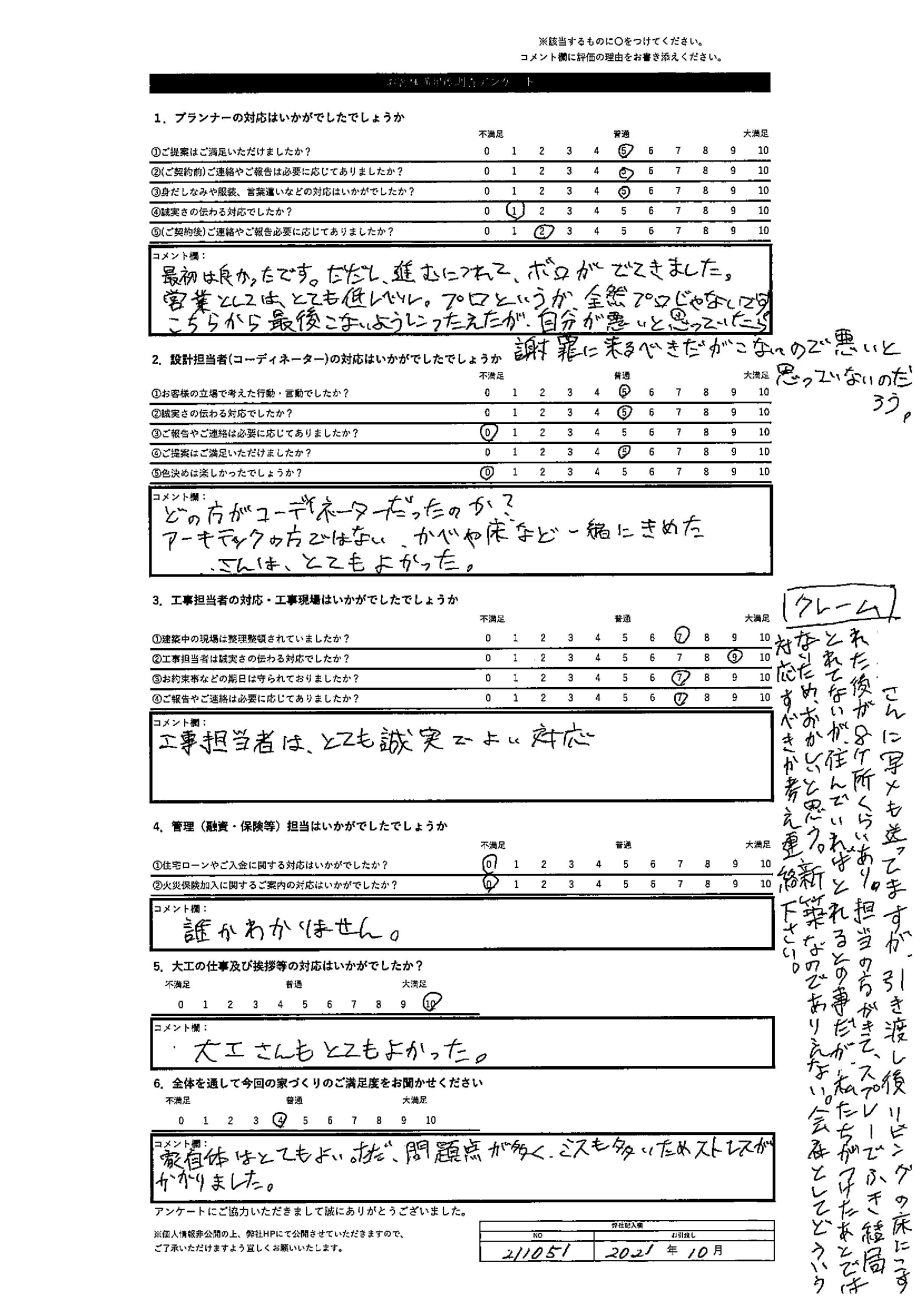 ※該当するものに〇をつけてください。
コメント欄に評価の理由をお書き添えください。
1．プランナーの対応はいかがでしたでしょうか
不満足 普通 大満足
①ご提案はご満足いただけましたか？ 0 1 2 3 4 5 6 7 8 9 10
②(ご契約前)ご連絡やご報告は必要に応じてありましたか？ 0 1 2 3 4 5 6 7 8 9 10
③身だしなみや服装、言葉遣いなどの対応はいかがでしたか？ 0 1 2 3 4 5 6 7 8 9 10
④誠実さの伝わる対応でしたか？ 0 1 2 3 4 5 6 7 8 9 10
⑤(ご契約後)ご連絡やご報告必要に応じてありましたか？ 0 1 2 3 4 5 6 7 8 9 10
コメント欄：
最初は良かったです。ただし、進むにつれて、ボロがでてきました。
営業としては、とても低レベル。プロというか、全然プロじゃないです
こちらから最後こないようにつたえたが、自分が悪いと思っていたら
謝罪に来るべきだがこないので悪いと
思っていないのだ
ろう。
2．設計担当者(コーディネーター)の対応はいかがでしたでしょうか
不満足 普通 大満足
①お客様の立場で考えた行動・言動でしたか？ 0 1 2 3 4 5 6 7 8 9 10
②誠実さの伝わる対応でしたか？ 0 1 2 3 4 5 6 7 8 9 10
③ご報告やご連絡は必要に応じてありましたか？ 0 1 2 3 4 5 6 7 8 9 10
④ご提案はご満足いただけましたか？ 0 1 2 3 4 5 6 7 8 9 10
⑤色決めは楽しかったでしょうか？ 0 1 2 3 4 5 6 7 8 9 10
コメント欄：
どの方がコーディネーターだったのか？
アーキテックの方ではない、かべや床など一緒にきめた
さんは、とてもよかった。
3．工事担当者の対応・工事現場はいかがでしたでしょうか
不満足 普通 大満足
①建築中の現場は整理整頓されていましたか？ 0 1 2 3 4 5 6 7 8 9 10
②工事担当者は誠実さの伝わる対応でしたか？ 0 1 2 3 4 5 6 7 8 9 10
③お約束事などの期日は守られておりましたか？ 0 1 2 3 4 5 6 7 8 9 10
④ご報告やご連絡は必要に応じてありましたか？ 0 1 2 3 4 5 6 7 8 9 10
コメント欄：
工事担当者は、とても誠実でよい対応
4．管理（融資・保険等）担当はいかがでしたでしょうか
不満足 普通 大満足
①住宅ローンやご入金に関する対応はいかがでしたか？ 0 1 2 3 4 5 6 7 8 9 10
②火災保険加入に関するご案内の対応はいかがでしたか？ 0 1 2 3 4 5 6 7 8 9 10
コメント欄：
誰かわかりません。
5．大工の仕事及び挨拶等の対応はいかがでしたか？
不満足 普通 大満足
0 1 2 3 4 5 6 7 8 9 10
コメント欄：
大工さんもとてもよかった。
6．全体を通して今回の家づくりのご満足度をお聞かせください
不満足 普通 大満足
0 1 2 3 4 5 6 7 8 9 10
コメント欄：
家自体はとてもよい。ただ、問題点が多く、ミスも多いためストレスが
かかりました。
アンケートにご協力いただきまして誠にありがとうございました。
※個人情報非公開の上、弊社HPにて公開させていただきますので、
ご了承いただけますよう宜しくお願いいたします。
弊社記入欄
NO お引渡し
211051 2021 年 10 月
クレーム
さんに写メも送ってますが、引き渡し後リビングの床にこす
れた後が8ケ所くらいあり。担当の方がきて、スプレーでふき結局
とれてないが、住んでいればとれるとの事だが、私たちがつけたあとでは
ないため、おかしいと思う。新築なのでありえない。会社としてどういう
対応すべきか考え連絡下さい。